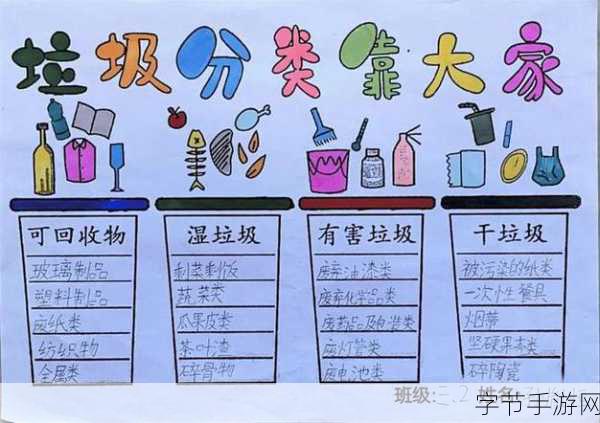 垃圾分类靠大家
可回收物
玻璃制品
塑料制品
废纸类
纺织物
金属类
湿垃圾
剩菜剩饭
蔬菜类
瓜果皮类
茶叶渣
碎骨物
有害垃圾
废弃油漆类
废弃化学品类
废药品及包装类
废灯管类
废电池类
干垃圾
被污染的纸类
一次性餐具
烟蒂
坚硬果壳类
碎陶瓷
班级:三.2 姓名:
字节手游网